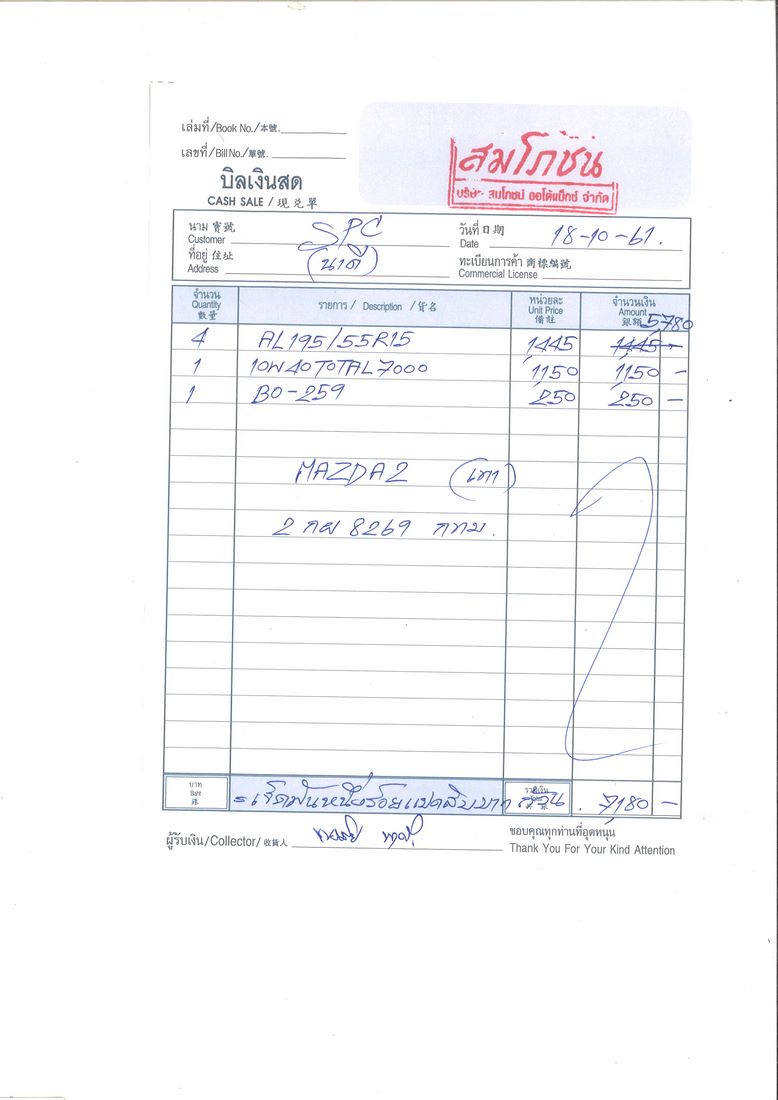 เล่มที่/Book No./本號.
เลขที่/Bill No./單號.
สมโภชน์
บริษัท สมโภชน์ ออโต้แม็กซ์ จำกัด
บิลเงินสด
CASH SALE / 現兑單
นาม 寶號
Customer SPC
วันที่ 日期
Date 18-10-61.
ที่อยู่ 住址
Address (นาดี)
ทะเบียนการค้า 商標編號
Commercial License
จำนวน
Quantity
數量
รายการ / Description / 貨名
หน่วยละ
Unit Price
備註
จำนวนเงิน
Amount
銀額 5,780
4 AL195/55R15 1,445 1,445 -
1 10W40 TOTAL 7000 1,150 1,150 -
1 BO-259 250 250 -
MAZDA2 (เทา)
2 กผ 8269 กทม.
บาท
Baht
銖
= เจ็ดพันหนึ่งร้อยแปดสิบบาทถ้วน. 7,180 -
ผู้รับเงิน/Collector/收貨人
ขอบคุณทุกท่านที่อุดหนุน
Thank You For Your Kind Attention